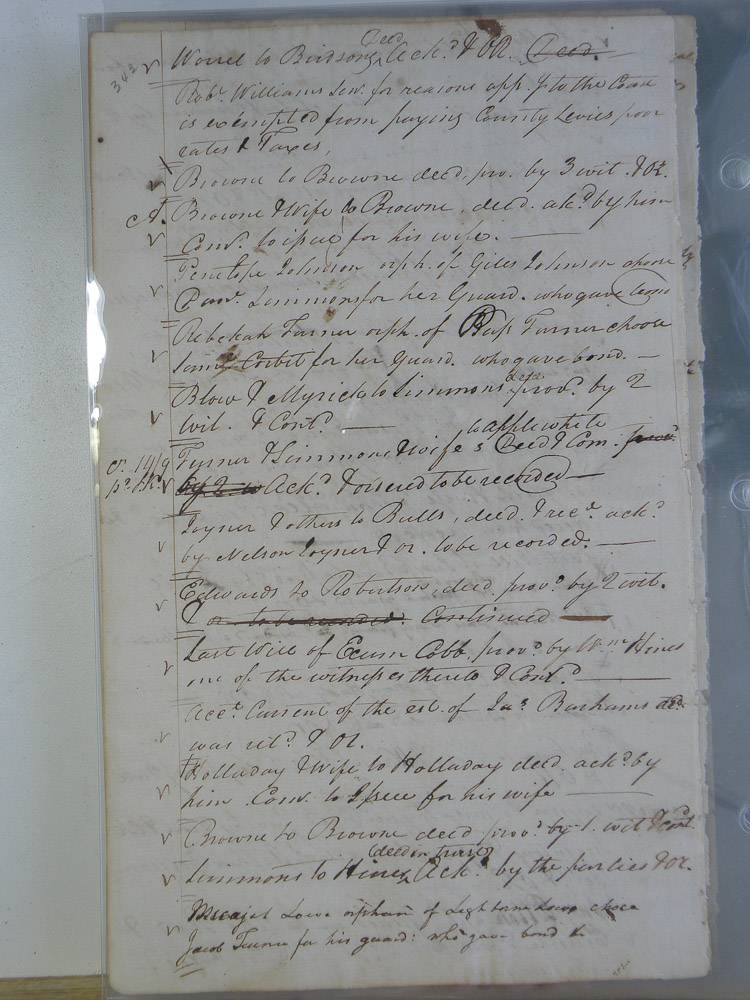 343
Worrel to Birdsong Deed Ack.d & OR. Deed.
Rob.t Williams Sen.r for reasons app.g to the Court
is exempted from paying County Levies poor
rates & Taxes,
Browne to Browne deed, pro. by 3 wit. & OR.
Browne & Wife to Browne, deed. ack.d by him
Com. to issue for his wife. —
Penelope Johnson orph. of Giles Johnson choose
Simmons for her Guard. who gave bond
Rebekah Turner orph. of Turner choose
Corbit for her guard. who gave bond. —
Blow & Myrick to Simmons deed prov.d by 2
Wit. & Cont.d —
Turner & Simmons & wife's to applewhite Deed & Com. prov.d
by 2 w Ack.d & ordered to be recorded —
Joyner & others to Bulls, deed. & rec.t ack.d
by Nelson Joyner & or. to be recorded. —
Edwards to Robertson, deed. prov.d by 2 wit.
& or to be recorded. Continued —
Last Will of Exum Cobb, prov.d by W.m Hines
one of the witnesses thereto & Cont.d —
Acc.t Current of the est. of Ja.s Barhams dec.
was ret.d & OR.
Holladay & Wife to Holladay deed ack.d by
him Com. to Issue for his wife —
Browne to Browne deed prov.d by 1. wit & Cont.
Simmons to Hines (deed in trust) Ack.d by the parties & OR.
Micajah Lowe orphan of Lowe choce
Jacob Turner for his guard: who gave bond &